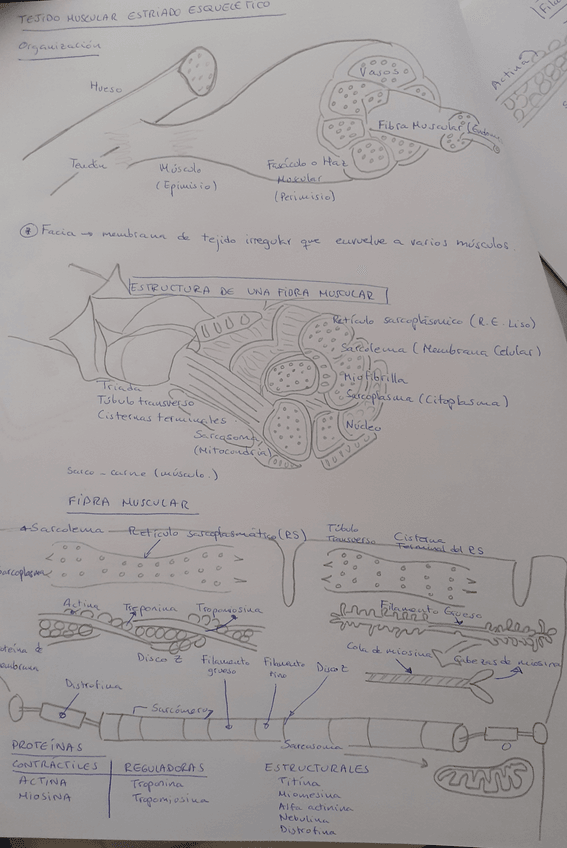 TEJIDO MUSCULAR ESTRIADO ESQUELÉTICO
Organización
Hueso
Vasos
Actina
Fibra Muscular
Tendón
Músculo
(Epimisio)
Fascículo o Haz
Muscular
(Perimisio)
* Facia → membrana de tejido irregular que envuelve a varios músculos.
ESTRUCTURA DE UNA FIBRA MUSCULAR
Retículo sarcoplásmico (R.E. Liso)
Sarcolema (Membrana Celular)
Miofibrilla
Sarcoplasma (Citoplasma)
Núcleo
Triada
Túbulo transverso
Cisternas terminales
Sarcosoma
(Mitocondria)
Sarco - carne (músculo.)
FIBRA MUSCULAR
Sarcolema
Retículo sarcoplasmático (RS)
Túbulo
Transverso
Cisterna
Terminal del RS
Sarcoplasma
Actina
Troponina
Tropomiosina
Filamento Grueso
Disco Z
Filamento
grueso
Filamento
fino
Disco Z
Cola de miosina
Cabezas de miosina
Distrofina
Sarcómero
Sarcosoma
PROTEÍNAS
CONTRÁCTILES
ACTINA
MIOSINA
REGULADORAS
Troponina
Tropomiosina
ESTRUCTURALES
Titina
Miomesina
Alfa actinina
Nebulina
Distrofina